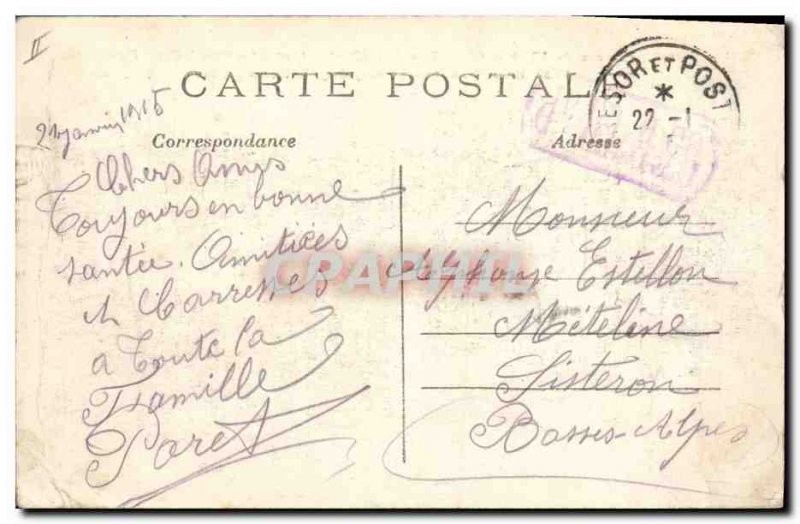 II
CARTE POSTALE
TRESOR ET POSTES
* 
22 -1
21 janvier 1915
Correspondance
Adresse
Chers Amis
Toujours en bonne
santée. Amitiées
et Carresses
a toute la
Famille
Paret
Monsieur
Alphonse Estellon
Mételine
Sisteron
Basses-Alpes
CRAPHIL